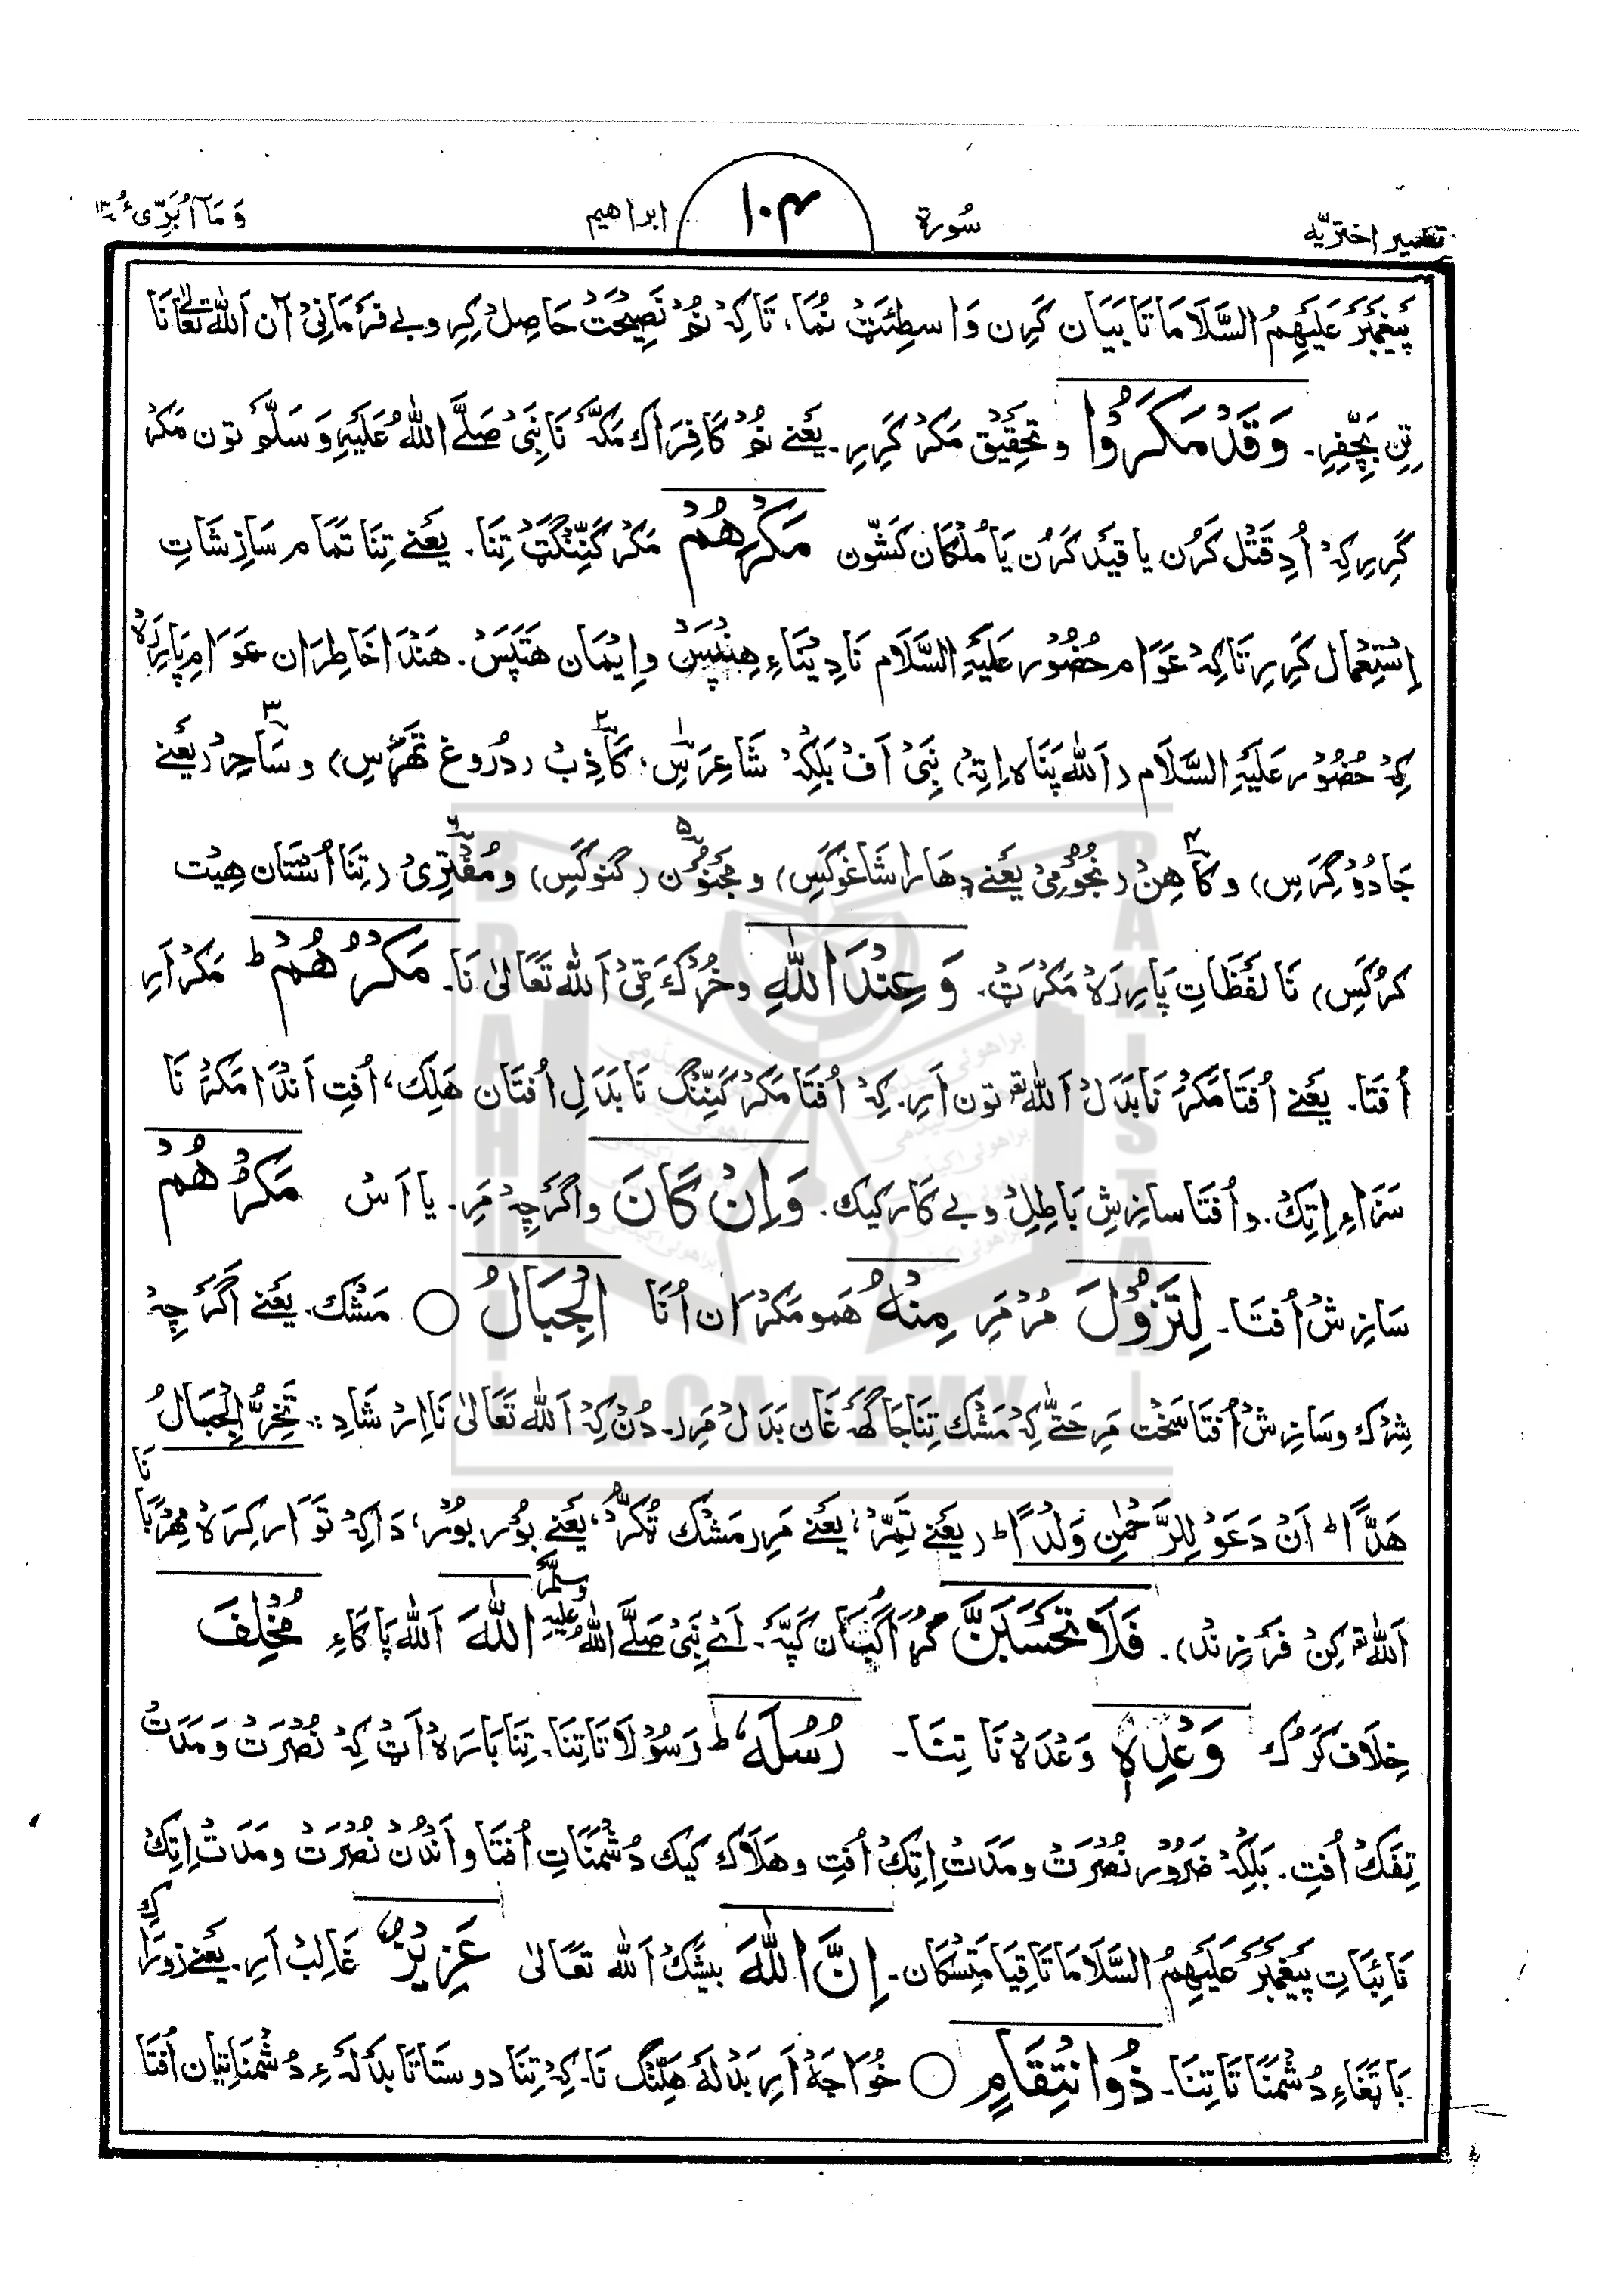 تفسیر اختریّه سُورة ۱۰۴ ابراهیم وَمَآ اُبَرِّیُٔ ۱۳
پَیغمبَر عَلَیهِمُ السَّلَامَا تَا بَیَان کَرِن وَاسطِئَتْ نُمَا، تَاکِہْ نُمْ نَصِیْحَتْ حَاصِلْ کِرِ و بے فَرمَانِیْ آن اَللّٰہ تَعَالٰی نَا
تِنِ بَچِّفِرِ۔ وَقَدْ مَکَرُوْا و تحقِیْق مَکرْ کَرِیرِ۔ یَعْنے نُمْ کَافِرَاک مَکَّہ نَا نَبِیْ صَلَّے اللّٰہُ عَلَیہِ وَسَلَّمْ تون مَکرْ
کَرِیرِ کِہْ اُدِ قَتْل کَرُن یا قَیْد کَرُن یَا مُلْکَان کَشُّون مَکْرَهُمْ مَکرْ کَنِّنْگَٹْ تِنَا۔ یَعْنے تِنَا تَمَام سَازِشَاتِ
اِسْتِعْمَال کَرِیرِ تَاکِہْ عَوَام حُضُوْر عَلَیہِ السَّلَام نَا دِیْنَاءِ هِنْپَسْ و اِیْمَان هَتَپَسْ۔ هَنْدَا خَاطِرَان عَوَامِ پَارِرَہْ
کِہْ حُضُوْر عَلَیہِ السَّلَام (اَللّٰہ پَنَاہ اِتِہْ) نَبِیْ اَفْ بَلکِہْ شَاعِرَسِّ ۱، کَاذِبْ ۲ (دُرُوغ تَهرَّسِ) و سَاحِرْ ۳ (یَعْنے
جَادُوْگِرَسِ) و کَاهِنْ ۴ (نُجُوْمِیْ یَعْنے دهَارَا شَاغُوکَسِ) و مَجْنُوْن ۵ (گنوکَسِ) و مُفْتَرِیْ ۶ (تِنَا اُسْتَان هِیْت
کَرُکَسِ) نَا لَفَظَاتِ پَارِرَہْ مَکرَٹْ۔ وَعِنْدَ اللّٰہِ و خُرْکَ قِیْ اَللّٰہ تَعَالیٰ نَا۔ مَکْرُهُمْ ؕ مَکرْ اَرِ
اُفتَا۔ یَعْنے اُفتَا مَکرْ نَا بَدَلْ اَللّٰہ تون اَرِ۔ کِہْ اُفتَا مَکرْ کَنِّنْگ نَا بَدَلِ اُفتَان هَلِک، اُفتِ اَنْدَا مَکرْ نَا
سَزَاءِ اِتِکْ۔ و اُفتَا سازِشِ بَاطِلْ و بے کَار کَیک۔ وَاِنْ کَانَ و اگرَچِہْ مَرِ۔ یا اَسْ مَکْرُهُمْ
سَازِشْ اُفتَا۔ لِتَزُوْلَ مُرْ مَرِ مِنْہُ هَمو مَکرْان اُنَا الْجِبَالُ ○ مَشْک۔ یَعْنے اَگرَچِہْ
شِرْک و سَازِشْ اُفتَا سَخْت مَرِ حَتّٰے کِہْ مَشْک تِنَا جَاگَهہ غَان بَدَل مَرِر۔ دُنْ کِہْ اَللّٰہ تَعَالیٰ نَا اِرْشَادِ:۔ تَخِرُّ الْجِبَالُ
هَدًّا ؕ اَنْ دَعَوْ لِلرَّحْمٰنِ وَلَدًا ؕ (یَعْنے تَمِّرْ، یَعْنے مَرِر مَشْک تُکرْ، یَعْنے بُوْر بُوْر، دَاکِہْ تَوَار کِرَہْ مِهْرْبَانَا
اَللّٰہ کِنْ فَرْزِنْد)۔ فَلَا تَحْسَبَنَّ گُمَان کَپَہ۔ اَے نَبِیْ صَلَّے اللّٰہُ عَلَیہِ وسلَّم اللّٰہَ اَللّٰہ پَاکَاءِ مُخْلِفَ
خِلَاف کَرُک وَعْدِہٖ وَعْدَہْ نَا تِنَا۔ رُسُلَہٗ ؕ رَسُوْلَاتَا تِنَا۔ تِنَا بَارَہْ اَٹْ کِہْ نُصْرَتْ وَ مَدَتْ
تِفَکْ اُفتِ۔ بَلکِہْ ضَرُوْر نُصْرَتْ و مَدَتْ اِتِکْ اُفتِ و هَلَاک کَیک دُشْمَنَاتِ اُفتَا و اَنْدُنْ نُصْرَتْ و مَدَتْ اِتِکْ
نَائِبَاتِ پَیغمبَر عَلَیهِمُ السَّلَامَا تَا قِیَامَتِسْکَان۔ اِنَّ اللّٰہَ بیْشَکْ اَللّٰہ تعَالیٰ عَزِیْزٌ غَالِبْ اَرِ۔ یَعْنے زورَاک
بَاتَغَاءِ دُشْمَنَاتَا تِنَا۔ ذُوانْتِقَامٍ ○ خُوَاجَہْ اَرِ بَدْلَہ هَلِّنْگ نَا۔ کِہْ تِنَا دوستَاتَا بَدْلَہءِ دُشْمَنَاتِیَان اُفتَا